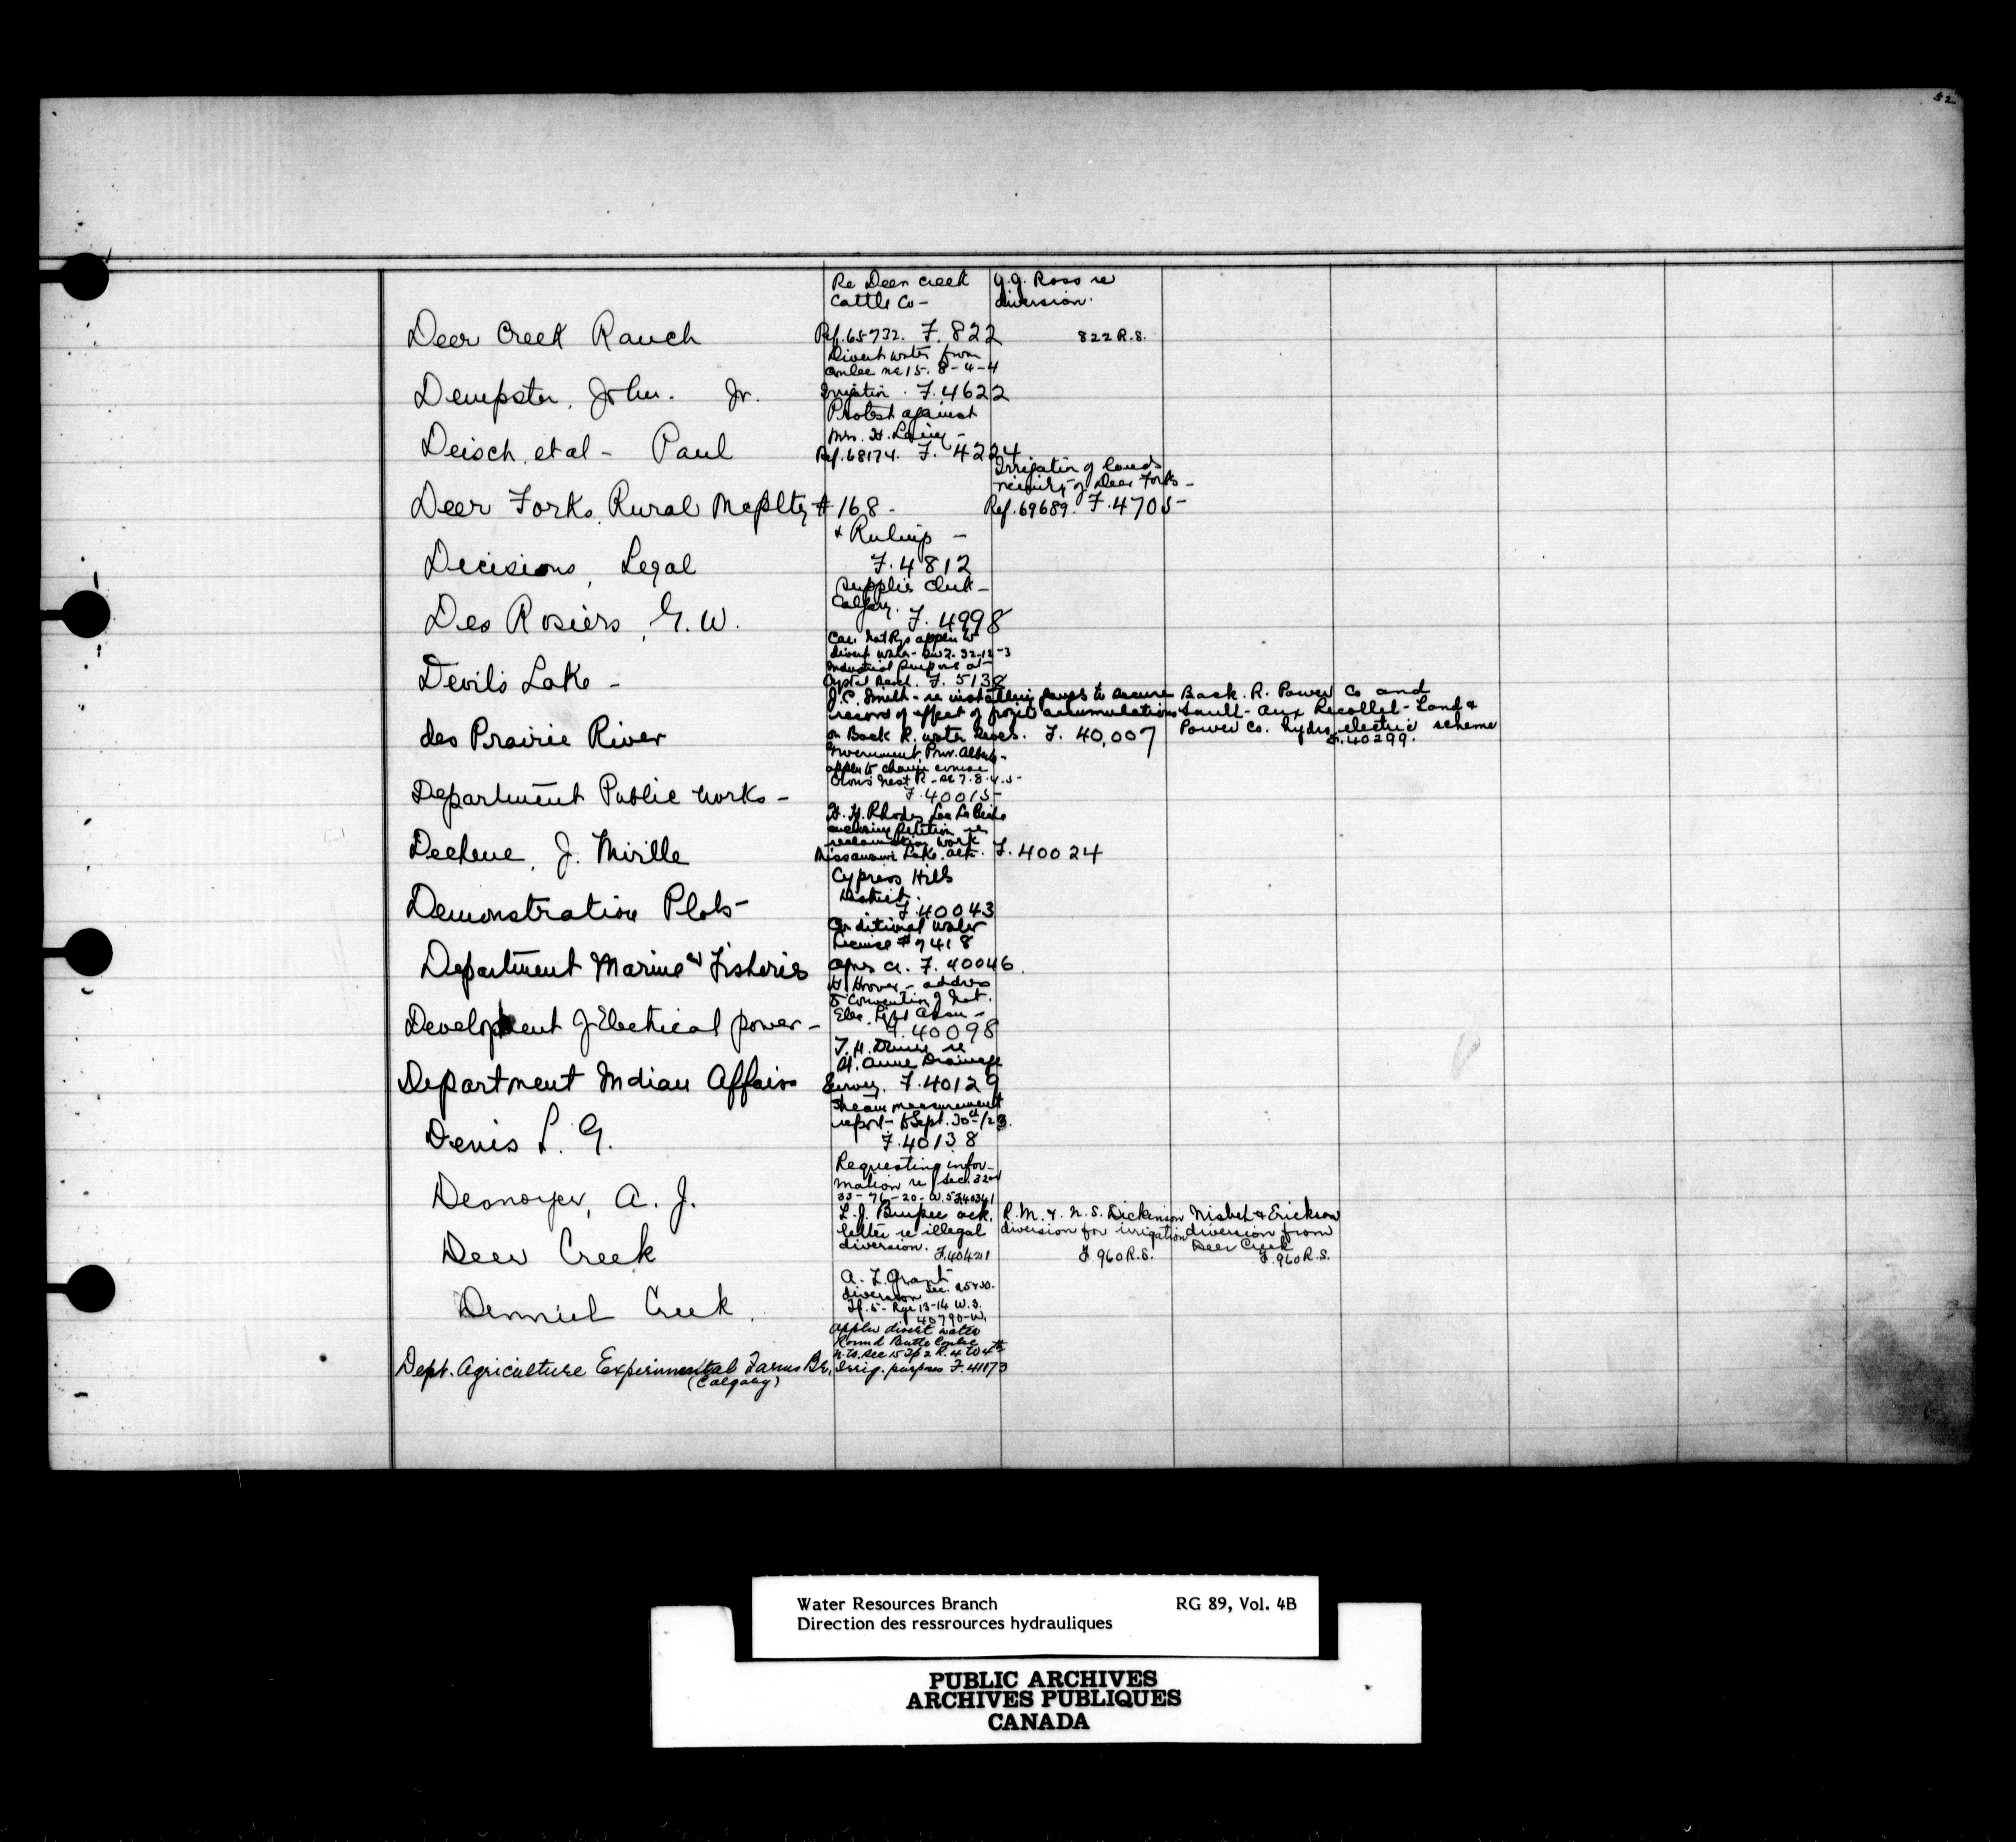 52
Re Deer Creek
Cattle Co -
G.G. Ross re
diversion.
Deer Creek Ranch
Ref. 65732. F. 822
822 R.S.
Divert water from
coulee ne 15. 8-4-4
Dempster, John. Jr.
Irrigation. F. 4622
Protest against
Mrs. H.
Deisch, et al - Paul
Ref. 68174. F. 4224
Irrigation of lands
vicinity of Deer Forks -
Deer Forks, Rural Mcplty # 168 -
Ref. 69689. F. 4705
& Rulings -
Decisions, Legal
F. 4812
Supplies
Calgary.
Des Rosiers, G. W.
F. 4998
Can. Nat Rys appln to
divert water - 32-12-3
Industrial purpose at
Devils Lake -
Crystal Beach. F. 5138
J. C. Smith - re installing gauges to secure
record of effect of frazil accumulations
on Back R. water levels. F. 40,007
Back. R. Power Co and
Sault-aux Recollet - Land &
Power Co. hydro electric scheme
F. 40299.
des Prairie River
Government, Prov. Alberta -
appln to change course
Crows Nest R - se 7. 8. 4. 5 -
Department Public Works -
F. 40015
H. H. Rhodes Lac La Biche
enclosing petition re
reclamation work
Dechene, J. Miville
Missawawi Lake. alta. F. 40024
Cypress Hills
District.
Demonstration Plots -
F. 40043
Conditional Water
License # 7418
Department Marine & Fisheries
F. 40046.
H. Hoover - address
to Convention of Nat.
Elec. Light Assn -
Development of Electrical power -
F. 40098
St. Anne Drainage
Department Indian Affairs
Survey. F. 40129
Stream measurement
report - to Sept. 30th/23.
Denis L. G.
F. 40138
Requesting infor-
mation re Sec. 32 &
33 - 76 - 20 - W. 5 F.40361
Desnoyer, A. J.
L. J. Burpee ack.
letter re illegal
diversion. F.40421
R. M. & N. S. Dickinson
diversion for irrigation
F. 960 R.S.
Nisbet & Erickson
diversion from
Deer Creek
F. 960 R.S.
Deer Creek
A. L. Grant
diversion Sec. 25 & 30.
Tp. 5 - Rge 13-14 W. 3.
40790-W.
Denniel Creek.
Appln divert water
Round Butte Coulee
N. W. Sec 15 Tp 2 R. 4 W 4th
Dept. Agriculture Experimental Farms Br. Irrig. purposes F. 41173
(Calgary)
Water Resources Branch RG 89, Vol. 4B
Direction des ressrources hydrauliques
PUBLIC ARCHIVES
ARCHIVES PUBLIQUES
CANADA